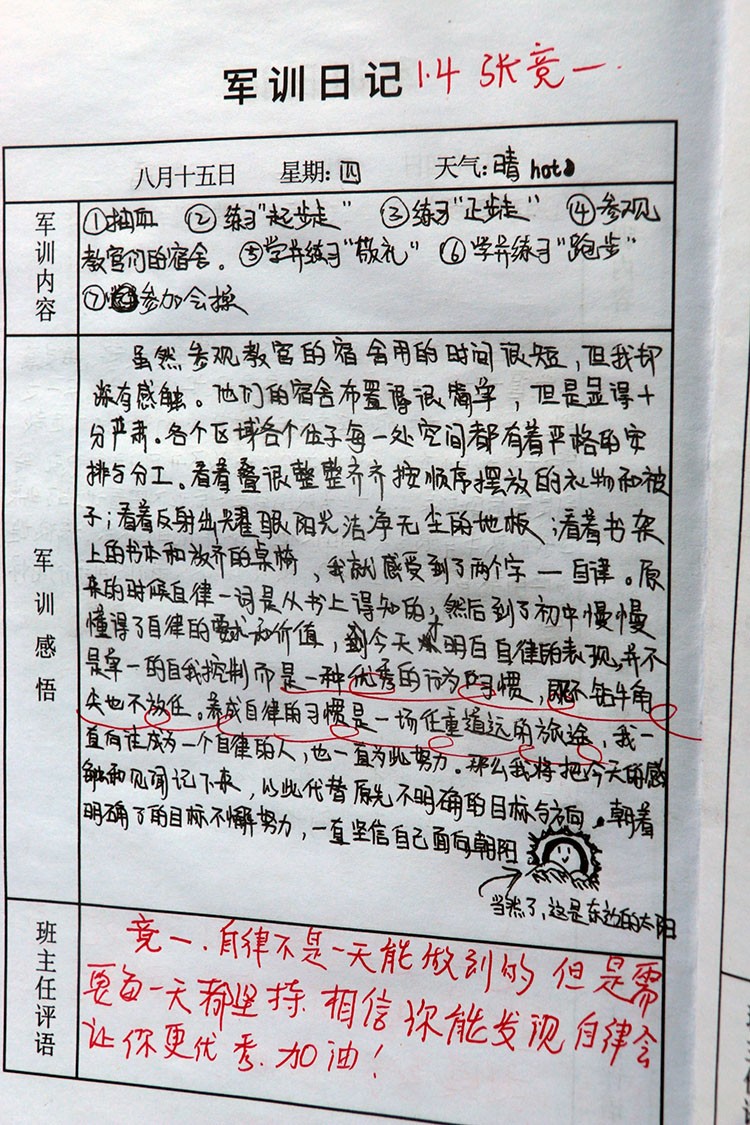 军训日记 1.4 张竞一.
八月十五日 星期:四 天气:晴 hot
军训内容
①抽血 ②练习"起步走" ③练习"正步走" ④参观
教官们的宿舍。⑤学并练习"敬礼" ⑥学并练习"跑步"
⑦参加会操
军训感悟
虽然参观教官的宿舍用的时间很短,但我却
深有感触。他们的宿舍布置得很简字,但是显得十
分严肃。各个区域各个位子每一处空间都有着严格的安
排与分工。看着叠很整整齐齐按顺序摆放的礼物和被
子;看着反射出耀眼阳光洁净无尘的地板;看着书架
上的书本和放齐的桌椅,我就感受到了两个字一自律。原
来的时候自律一词是从书上得知的,然后到了初中慢慢
懂得了自律的要求和价值,到今天才明白自律的表现,并不
是单一的自我控制而是一种优秀的行为与习惯,既不钻牛角
尖也不放任。养成自律的习惯是一场任重道远的旅途,我一
直向往成为一个自律的人,也一直为此努力。那么我将把今天的感
触和见闻记下来,以此代替原先不明确的目标与方向,朝着
明确了的目标不懈努力,一直坚信自己面向朝阳
当然了,这是东边的太阳
班主任评语
竞一.自律不是一天能做到的 但是需
要每一天都坚持.相信你能发现自律会
让你更优秀.加油!